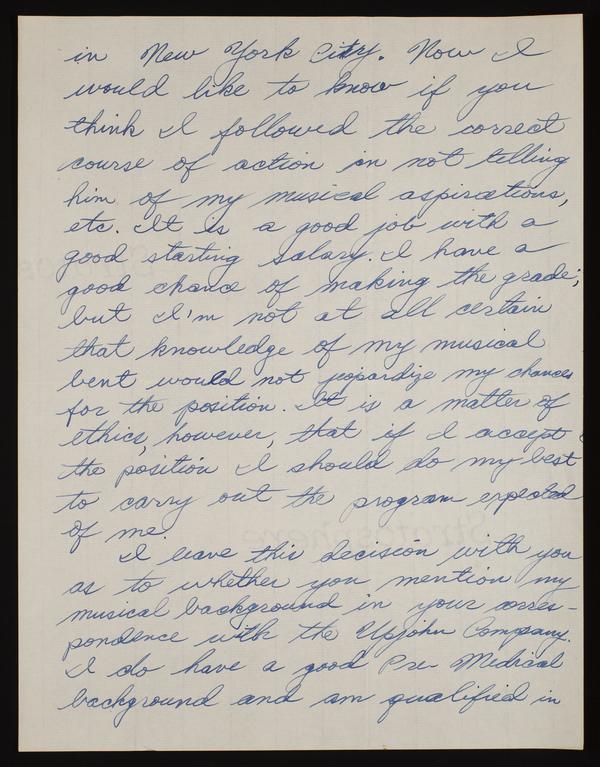 in New York City. Now I
would like to know if you
think I followed the correct
course of action in not telling
him of my musical aspirations,
etc. It is a good job with a
good starting salary. I have a
good chance of making the grade;
but I'm not at all certain
that knowledge of my musical
bent would not jeopardize my chances
for the position. It is a matter of
ethics, however, that if I accept
the position I should do my best
to carry out the program expected
of me.
I leave this decision with you
as to whether you mention my
musical background in your corres-
pondence with the Upjohn Company.
I do have a good Pre-Medical
background and am qualified in